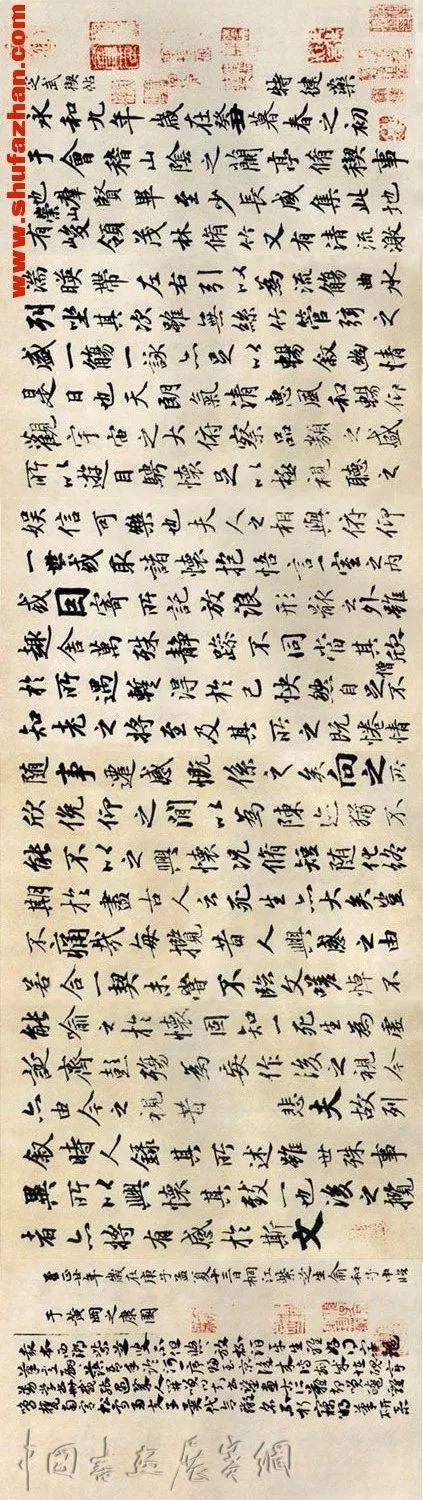 www.shufazhan.com
特健藥
永和九年歲在癸丑暮春之初
于會稽山陰之蘭亭脩稧事
也羣賢畢至少長咸集此地
有崇山峻領茂林脩竹又有清流激
湍暎帶左右引以為流觴曲水
列坐其次雖無絲竹管弦之
盛一觴一詠亦足以暢敘幽情
是日也天朗氣清惠風和暢仰
觀宇宙之大俯察品類之盛
所以遊目騁懷足以極視聽之
娛信可樂也夫人之相與俯仰
一世或取諸懷抱悟言一室之內
或因寄所託放浪形骸之外雖
趣舍萬殊靜躁不同當其欣
於所遇暫得於己怏然自足不
僧
知老之將至及其所之既惓情
隨事遷感慨係之矣向之所
欣俛仰之閒以為陳迹猶不
能不以之興懷況脩短隨化終
期於盡古人云死生亦大矣豈
不痛哉每攬昔人興感之由
若合一契未嘗不臨文嗟悼不
能喻之於懷固知一死生為虛
誕齊彭殤為妄作後之視今
亦由今之視昔悲夫故列
敘時人錄其所述雖世殊事
異所以興懷其致一也後之攬
者亦將有感於斯文
至正廿年歲在庚子孟夏十三日桐江紫芝生俞和子中臨
于黃岡之康園
中國書法展覽網